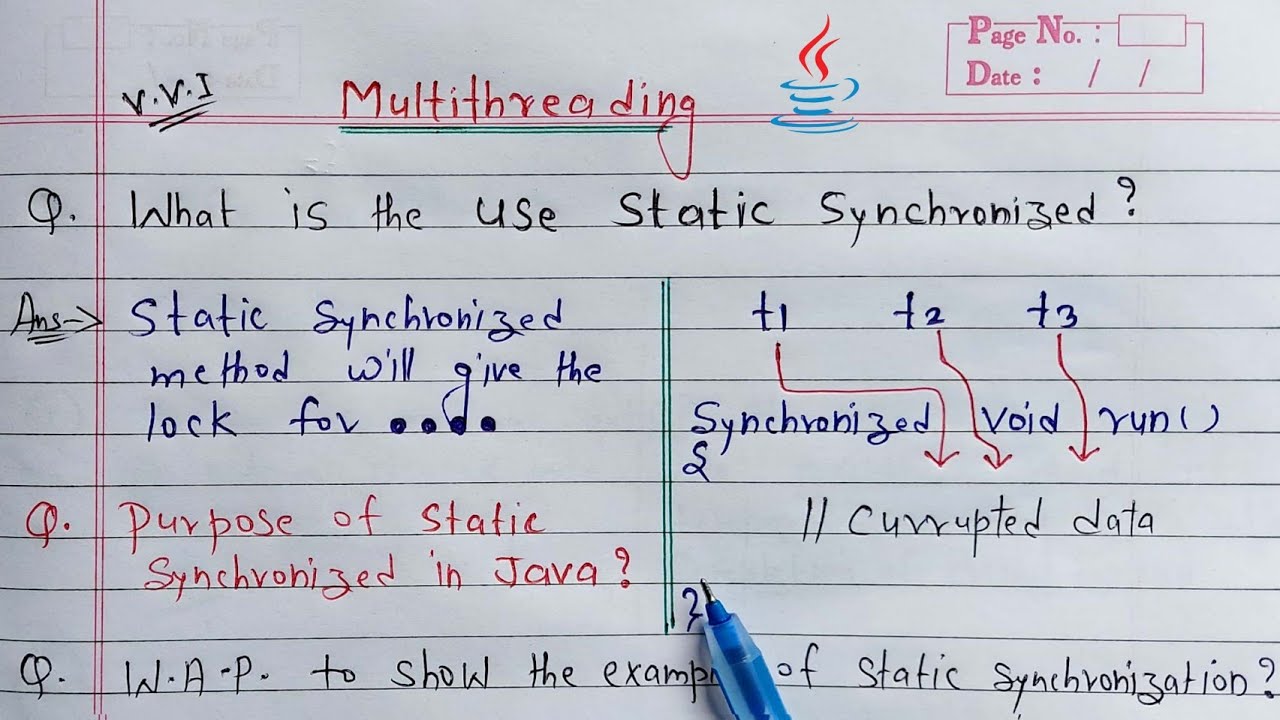 Page No. :
Date : / /
V.V.I
Multithreading
Q. What is the use Static Synchronized?
Ans→ Static Synchronized
method will give the
lock for ....
Q. Purpose of Static
Synchronized in Java?
t1 t2 t3
Synchronized void run()
{
// Currupted data
}
Q. W.A.P. to show the of Static Synchronization?